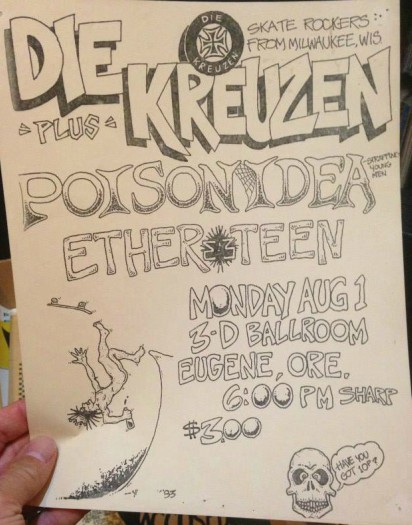 DIE KREUZEN
SKATE ROCKERS
FROM MILWAUKEE, WIS.
DIE
KREUZEN
PLUS
POISON IDEA
STRAPPING
YOUNG
MEN
ETHER TEEN
MONDAY AUG 1
3-D BALLROOM
EUGENE, ORE.
6:00 PM SHARP
$3.00
HAVE YOU
GOT 10P?